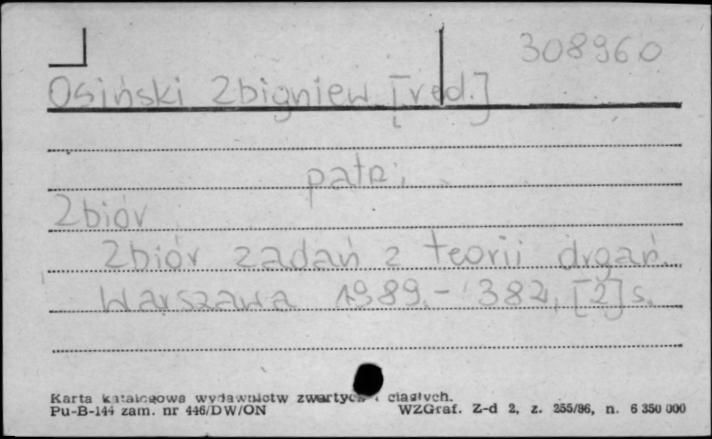 308960
Osiński Zbigniew [red.]
patrz:
Zbiór
Zbiór zadań z teorii drgań.
Warszawa 1989. - 382, [2] s.
Karta katalogowa wydawnictw zwartych i ciągłych.
Pu-B-144 zam. nr 446/DW/ON WZGraf. Z-d 2, z. 255/86, n. 6 350 000